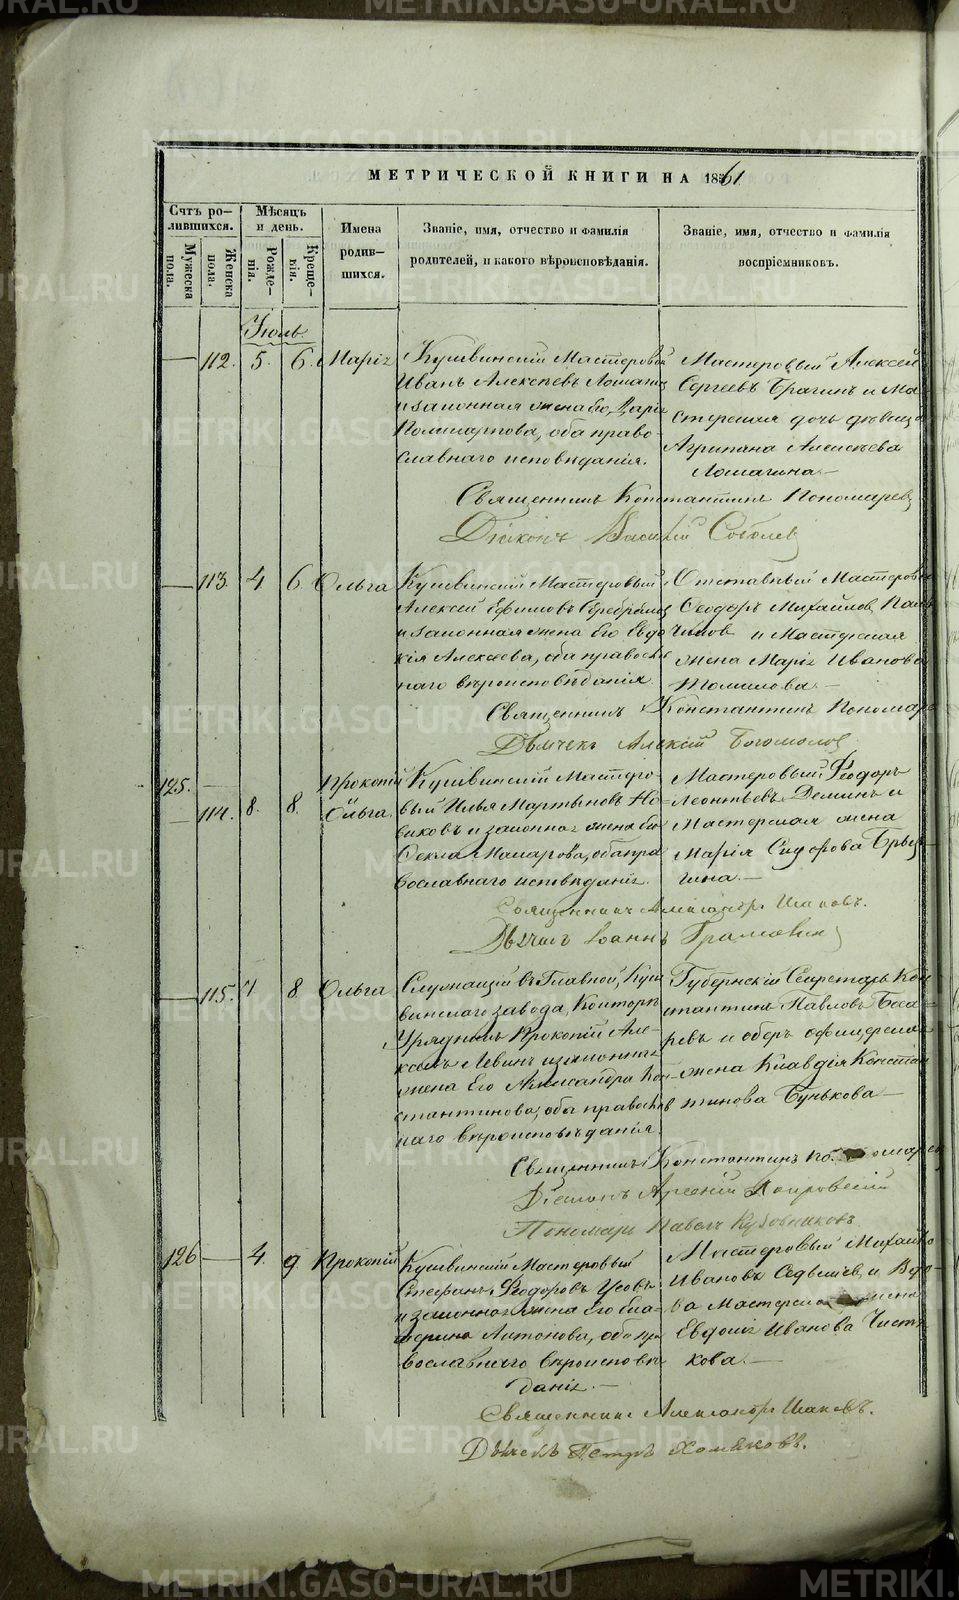 METRIKI.GASO-URAL.RU
МЕТРИЧЕСКОЙ КНИГИ НА 1861
Счтъ ро-
дившихся.
Мѣсяцъ
и день.
Мужеска
пола.
Женска
пола.
Рожде-
нія.
Креще-
нія.
Имена
родив-
шихся.
Званіе, имя, отчество и фамилія
родителей, и какого вѣроисповѣданія.
Званіе, имя, отчество и фамилія
воспріемниковъ.
Іюль
112. 5. 6. Марія
Кушвинскій Мастеровой
Иванъ Алексѣевъ
и законная жена его Дарія
оба право
славнаго исповѣданія.
Мастеровый Алексей
Сергеевъ Брагинъ и Ма
стерская дочь девица
Агрипина Алексѣева
Ломагина
Священникъ Константинъ Пономаревъ
Діаконъ Василій Соболев
113 4 6 Ольга
Кушвинскій Мастеровый
Алексей Ефимовъ
и законная жена Его Евдо
кія Алексѣева, оба правосла
наго вѣроисповѣданія.
Отставный Мастеров
Ѳеодоръ Михайлов
и Мастерская
жена Марія Иванова
Томилова
Священникъ Константинъ Пономар
Дьячекъ Алексій Богомолов
125.
114. 8. 8.
Прокопій
и
Ольга
Кушвинскій Мастеро-
вый Илья Мартыновъ Но-
виковъ и законная жена его
Ѳекла Макарова, оба пра
вославнаго исповѣданія.
Мастеровый Ѳеодоръ
Леонтьевъ Деминъ и
Мастерская жена
Марія Сидорова
гина.
Священникъ Александръ
Дьячекъ Іоаннъ
115. 7 8 Ольга
Служащій въ Главной Куш
винскаго завода Конторѣ
Урядникъ Прокопій Але-
Левинъ и законная
жена Его Александра Кон-
стантинова, оба правосла
наго вѣроисповѣданія.
Губернскій Секретарь Кон
стантинъ Павловъ
ревъ и оберъ офицерска
жена Клавдія Констан
тинова Бунькова
Священникъ Константинъ
Діаконъ Арсеній
Пономарь Павелъ
126 4. 9 Прокопій
Кушвинскій Мастеровый
Стефанъ Ѳеодоровъ Усовъ
и законная жена Его Ека-
терина Антонова, оба пра
вославнаго вѣроисповѣ
данія.
Мастеровый Михайло
Ивановъ и Вдо-
ва Мастерска жена
Евдокія Иванова Чистя
кова.
Священникъ Александръ
Дьячекъ Петръ Хомяковъ.